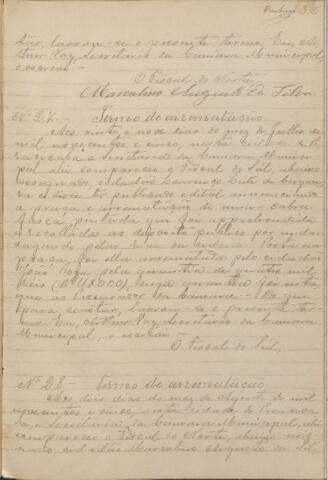 32
tino, lavrou-se o presente termo. Eu, Ar-
thur Vaz, secretario da Camara Municipal,
o escrevi.
O Fiscal do Norte,
Marcolino Augusto da Silva
Nº 27. Termo de arrematação
Aos vinte e nove dias do mez de Julho de
mil novecentos e cinco, nesta cidade de Pi-
racicaba e Secretaria da Camara Munici-
pal, ahi compareceu o Fiscal do Sul, abaixo
assignado, cidadão
e disse ter publicado edital annunciando
a praça e arrematação de uma cabra
pintada que foi apprehendida
e recolhida ao deposito publico por andar
vagando pelas ruas da cidade. Posta em
praça, foi ella arrematada pelo cidadão
João pela quantia de quatro mil
reis cuja quantia foi entre-
gue ao Procurador da Camara. Do que
para constar, lavrou-se o presente ter-
mo. Eu, Arthur Vaz, secretario da Camara
Municipal, o escrevi.
O Fiscal do Sul,
Nº 28. Termo de arrematação
Aos dois dias do mez de Agosto de mil
novecentos e cinco, nesta cidade de Piracica-
ba, e Secretaria da Camara Municipal, ahi
compareceu o Fiscal do Norte, abaixo assi-
gnado, cidadão Marcolino Augusto da Sil-